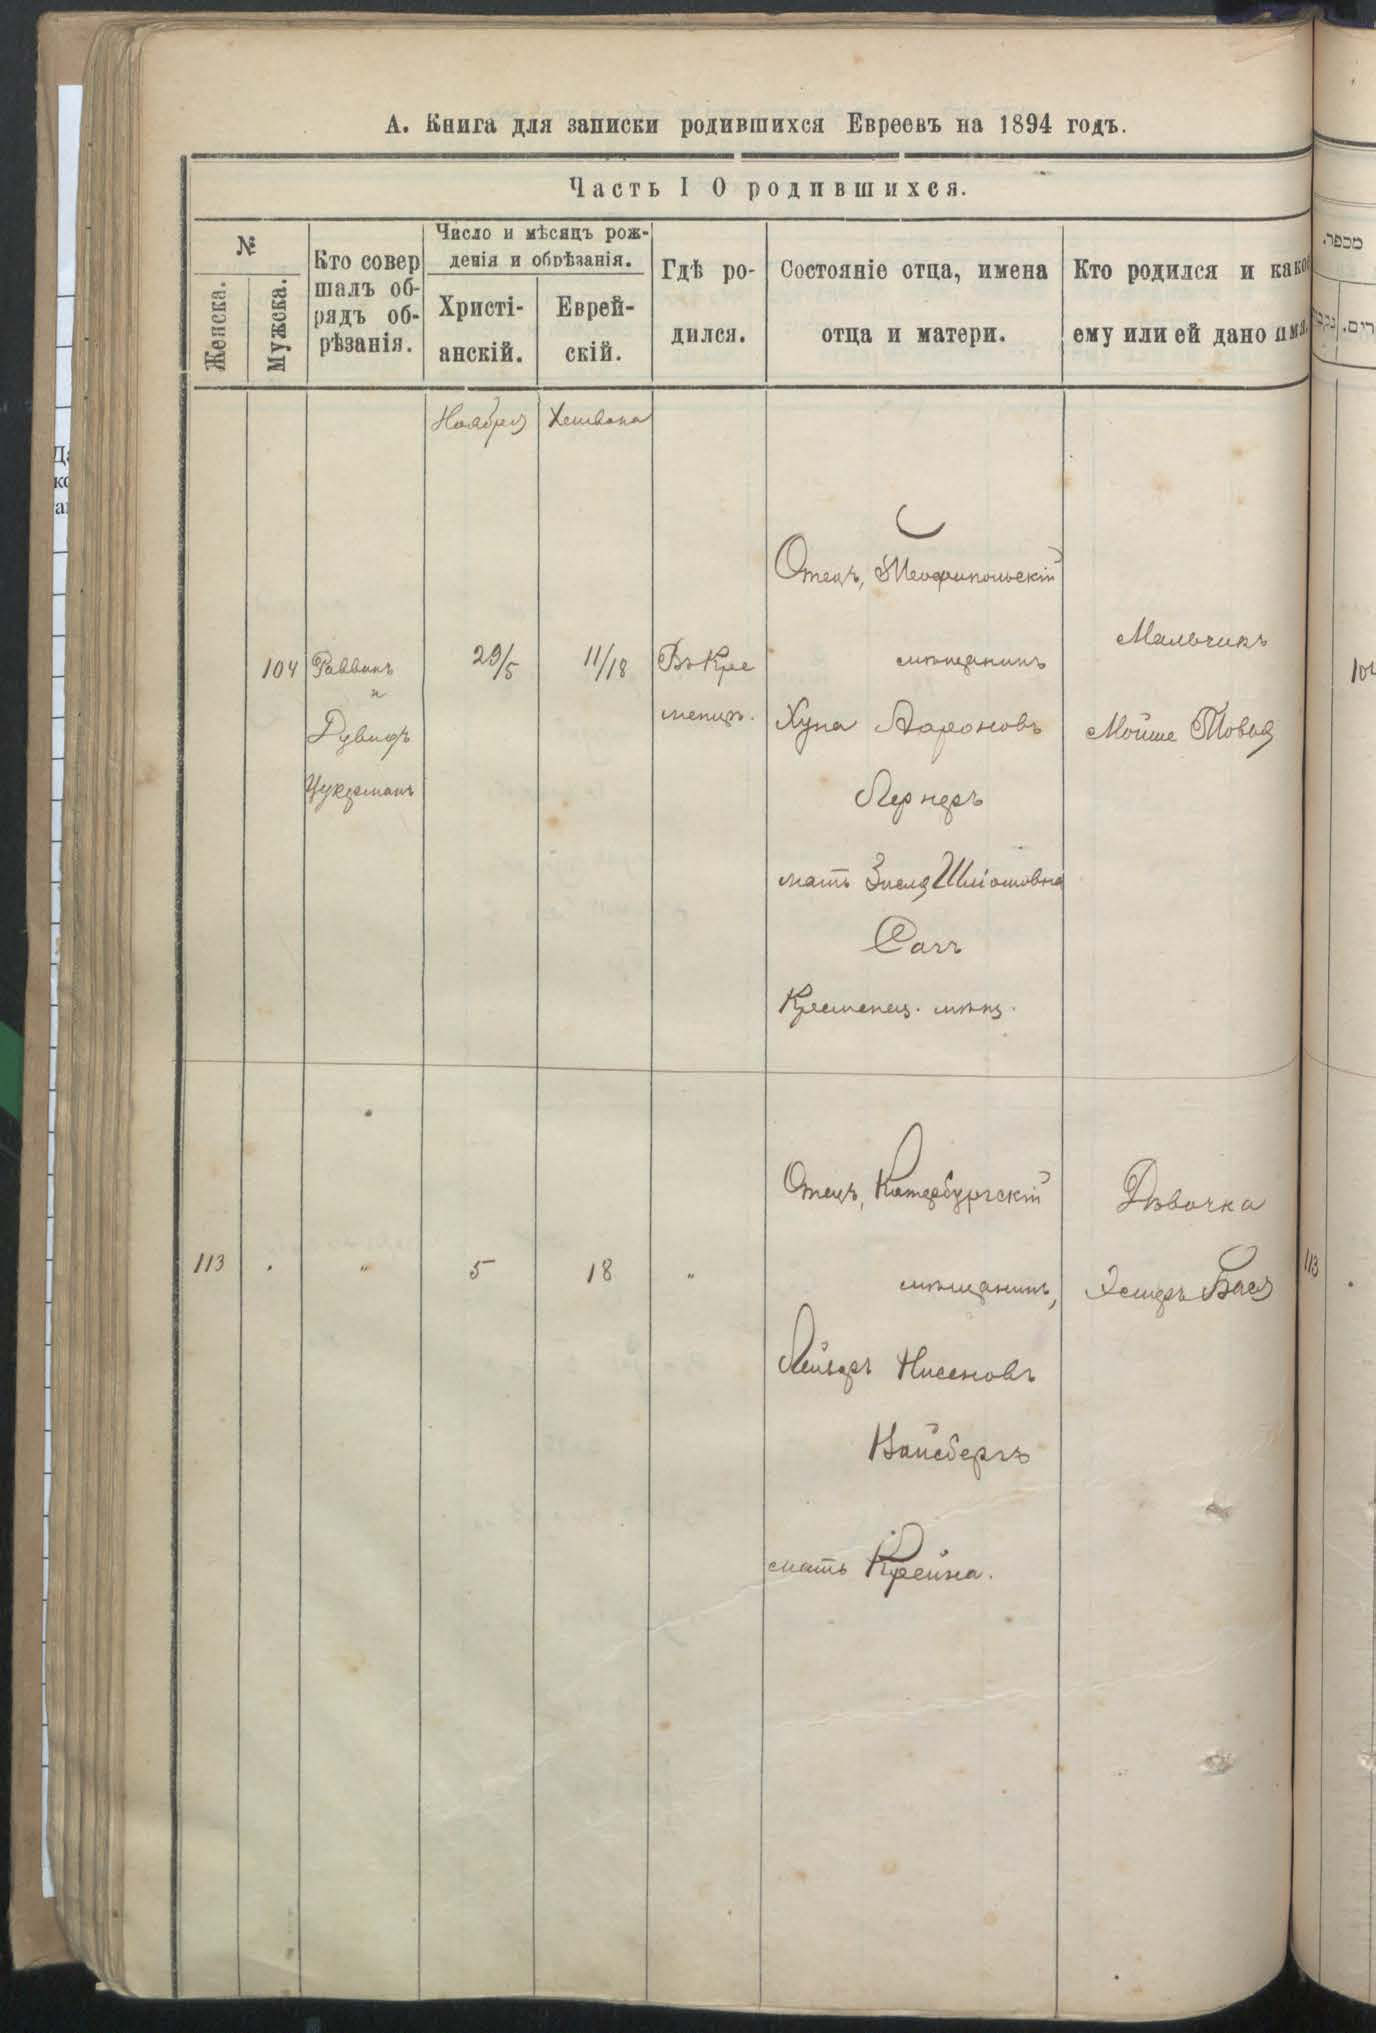 А. Книга для записки родившихся Евреевъ на 1894 годъ.
Часть I О родившихся.
№
Женска.
Мужска.
Кто совер
шалъ об-
рядъ об-
рѣзанія.
Число и мѣсяцъ рож-
денія и обрѣзанія.
Христі-
анскій.
Еврей-
скій.
Гдѣ ро-
дился.
Состояніе отца, имена
отца и матери.
Кто родился и какое
ему или ей дано имя.
מכפר.
Ноября
Хешвана
104
Раввинъ
и
Дувидъ
Цукерманъ
29/5
11/18
Въ Кре
менцѣ.
Отецъ, Теофипольскій
мѣщанинъ
Хуна Аароновъ
Лернеръ
мать Зисля Шліомовна
Сагъ
Кременец. мѣщ.
Мальчикъ
Мойше Товья
113
.
"
5
18
"
Отецъ, Катербургскій
мѣщанинъ,
Лейзеръ Нисеновъ
Вайсбергъ
мать Крейна.
Дѣвочка
Эстеръ Бася
113